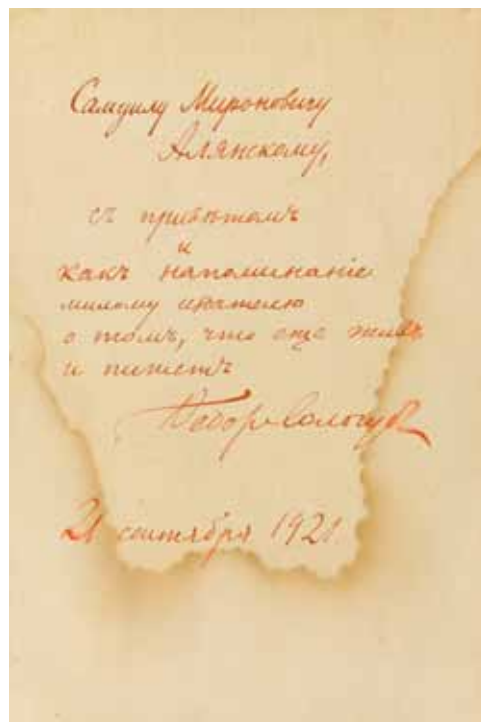 Самуилу Мироновичу
Алянскому,
съ привѣтомъ
и
какъ напоминаніе
милому издателю
о томъ, что еще живъ
и пишетъ
Федоръ Сологубъ
21 сентября 1921.